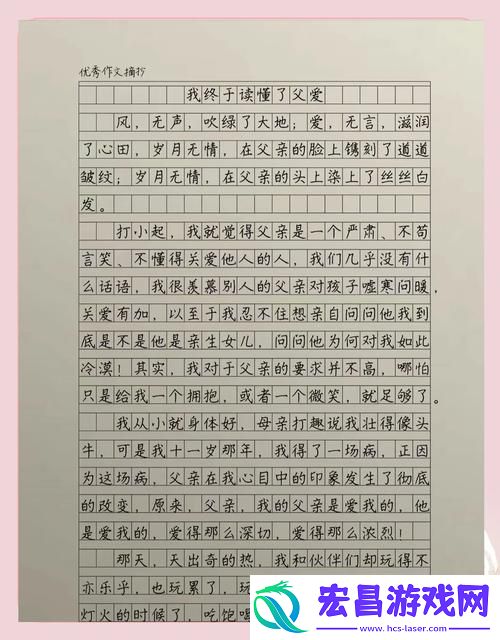 优秀作文摘抄
我终于读懂了父爱
风，无声，吹绿了大地；爱，无言，滋润
了心田，岁月无情，在父亲的脸上镌刻了道道
皱纹；岁月无情，在父亲的头上染上了丝丝白
发。
打小起，我就觉得父亲是一个严肃、不苟
言笑、不懂得关爱他人的人，我们几乎没有什
么话语，我很羡慕别人的父亲对孩子嘘寒问暖，
关爱有加，以至于我忍不住想亲自问问他我到
底是不是他是亲生女儿，问问他为何对我如此
冷漠！其实，我对于父亲的要求并不高，哪怕
只是给我一个拥抱，或者一个微笑，就足够了。
我从小就身体好，母亲打趣说我壮得像头
牛，可是我十一岁那年，我得了一场病，正因
为这场病，父亲在我心目中的印象发生了彻底
的改变，原来，父亲，我的父亲是爱我的，他
是爱我的，爱得那么深切，爱得那么浓烈！
那天，天出奇的热，我和伙伴们却玩得不
亦乐乎，也玩累了，玩
灯火的时候了，吃饱喝
宏昌游戏网
www.hcs-laser.com